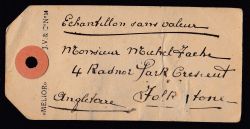 Echantillon sans valeur
Monsieur Michel Fache
4 Radnor Park Crescent
Angleterre Folkestone
"MELIOR"
J.V. & Cº Nº 14